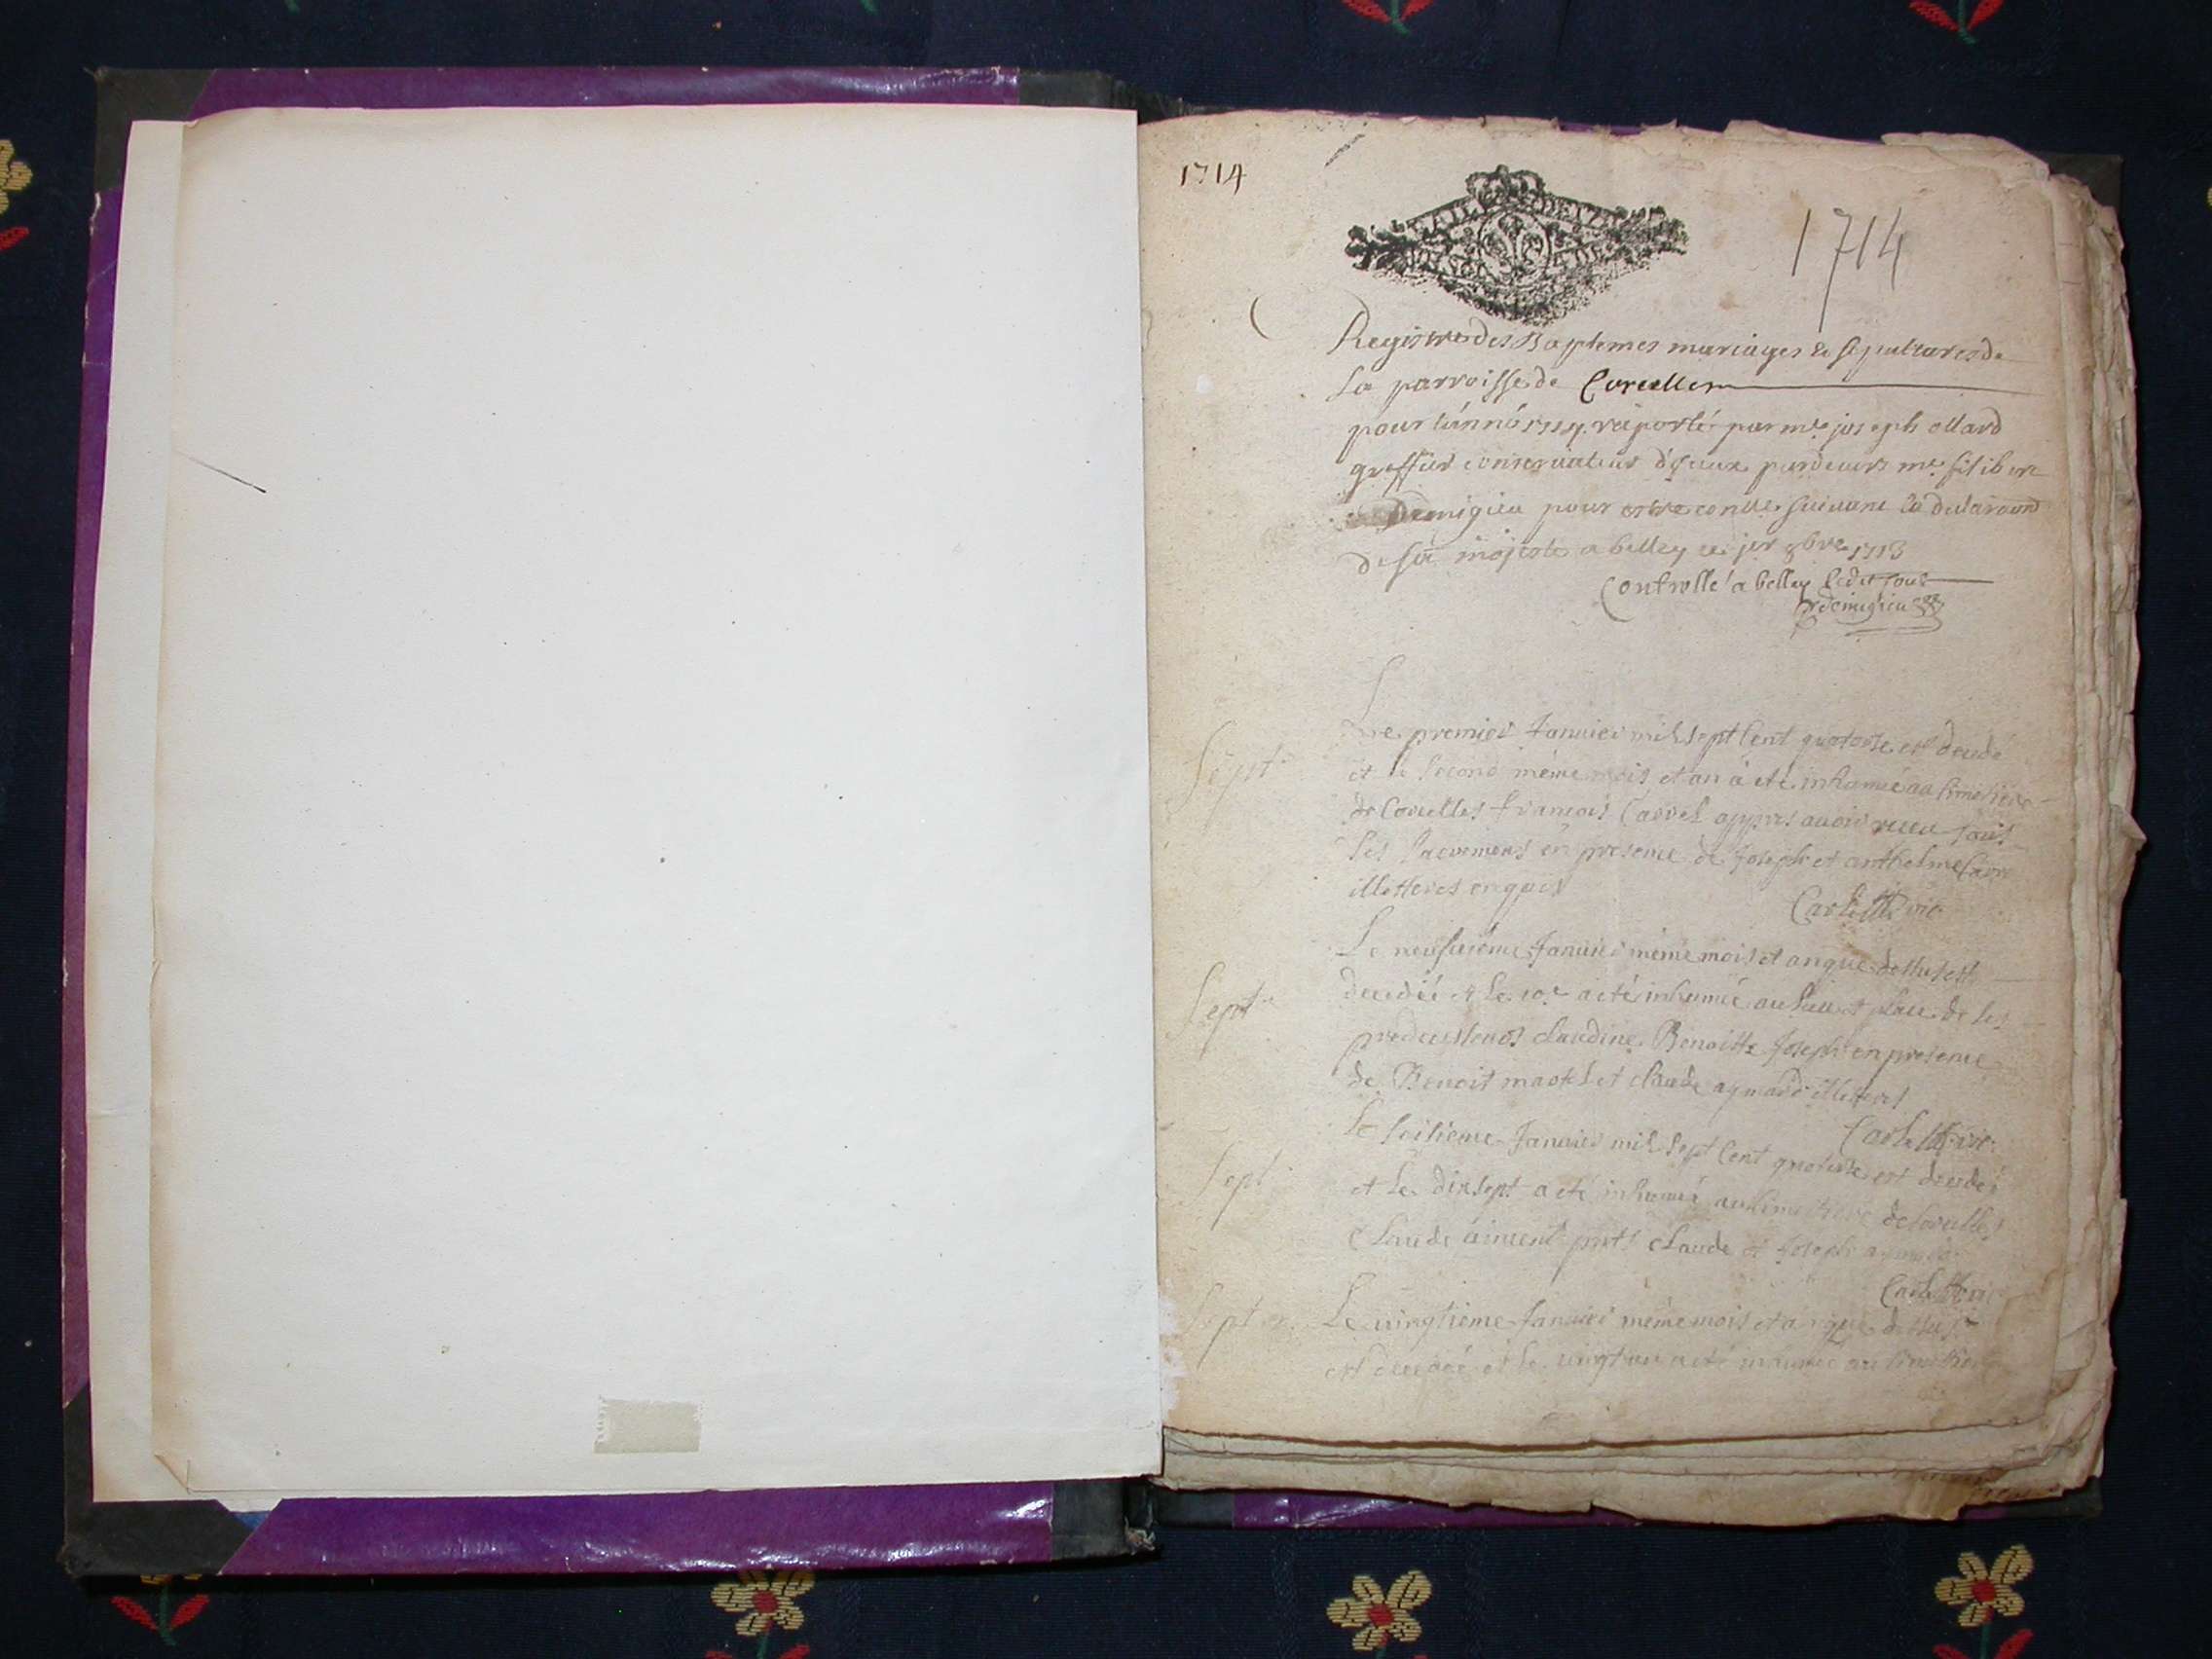 1714
1714
Registre des Baptemes mariages & sepultures de
la parroisse de Corcelles
pour lánnó 1714 raporté par me joseph ollard
greffier conservateur dÿceux pardevers me filibert
Demigieu pour estre conttle suivant la declaraõn
de sa majesté a belley ce jer 9bre 1713
Controllé a belley ledit jour
Demigieu
Sept
Le premier Januier mil sept Cent quatorse est decedé
et le second méme mois et an à eté inhumé au simetiere
de Corcelles Francois Carrel apprés auoir receu tous
les sacremens en presence de Joseph et anthelme Carre
illetteres enquis
vic
Sept
Le neufuiéme Januier méme mois et an que dessus est
decedée et le 10e a eté inhumée au lieu et place de ses
predecesseurs claudine Benoitte Joseph en presence
de Benoit martel et claude aymard illeteres
vic
Sept
Le seisieme Januier mil sept Cent quatorse est decedé
et le dix sept a eté inhumé au simettiere de Corcelles
Claude prnts Claude et Joseph
vic
Sept
Le uingtieme Januier méme mois et an que dessus
est decedée et le uingt un a eté inhumée au